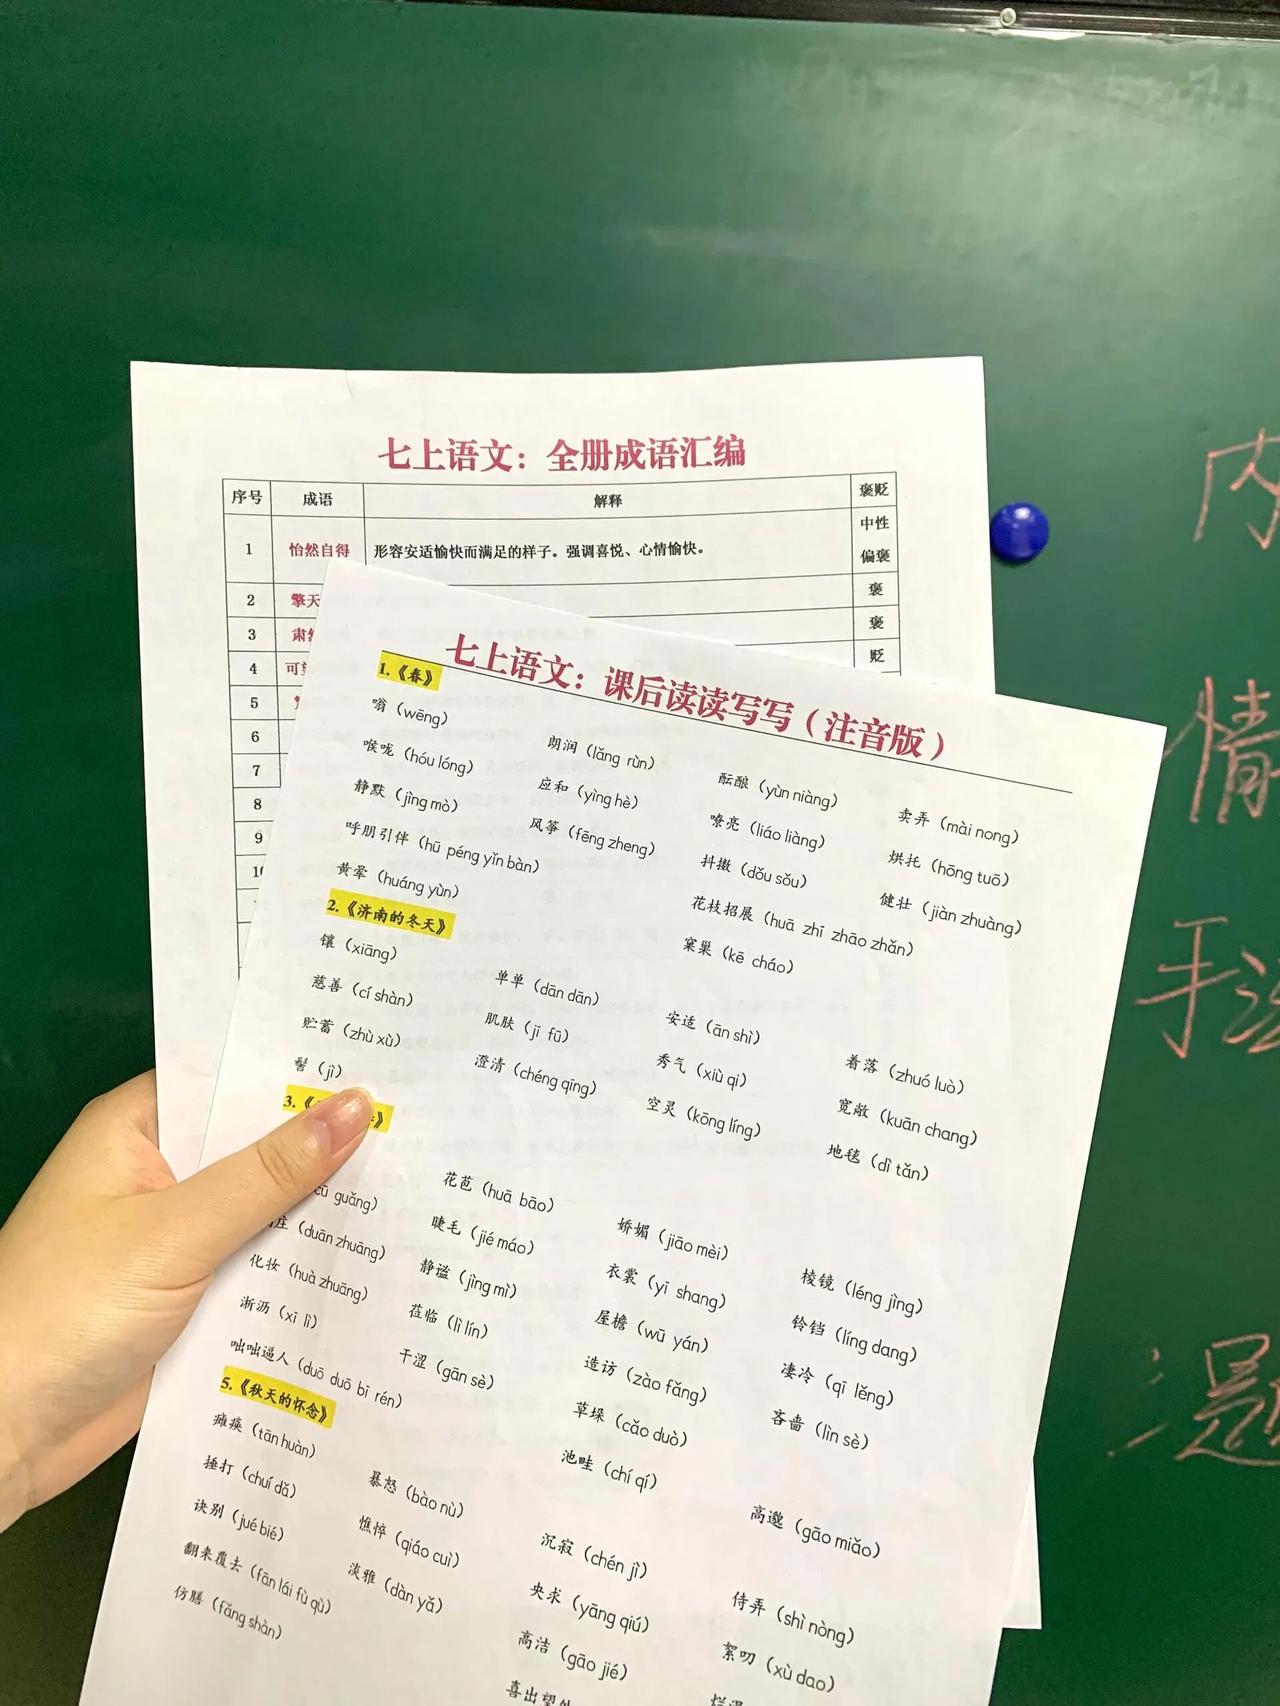 七上语文：全册成语汇编
序号 成语 解释 褒贬
1 怡然自得 形容安适愉快而满足的样子。强调喜悦、心情愉快。 中性偏褒
2 擎天 褒
3 肃然 褒
4 可望 贬
5
6
7
8
9
七上语文：课后读读写写（注音版）
1.《春》
嗡（wēng） 朗润（lǎng rùn） 酝酿（yùn niàng） 卖弄（mài nong）
喉咙（hóu lóng） 应和（yìng hè） 嘹亮（liáo liàng） 烘托（hōng tuō）
静默（jìng mò） 风筝（fēng zheng） 抖擞（dǒu sǒu） 健壮（jiàn zhuàng）
呼朋引伴（hū péng yǐn bàn） 花枝招展（huā zhī zhāo zhǎn）
黄晕（huáng yùn） 窠巢（kē cháo）
2.《济南的冬天》
镶（xiāng） 单单（dān dān） 安适（ān shì） 着落（zhuó luò）
慈善（cí shàn） 肌肤（jī fū） 秀气（xiù qi） 宽敞（kuān chang）
贮蓄（zhù xù） 澄清（chéng qīng） 空灵（kōng líng） 地毯（dì tǎn）
髻（jì）
3.《
guǎng） 花苞（huā bāo） 娇媚（jiāo mèi） 棱镜（léng jìng）
庄（duān zhuāng） 睫毛（jié máo） 衣裳（yī shang） 铃铛（líng dang）
化妆（huà zhuāng） 静谧（jìng mì） 屋檐（wū yán） 凄冷（qī lěng）
淅沥（xī lì） 莅临（lì lín） 造访（zào fǎng） 吝啬（lìn sè）
咄咄逼人（duō duō bī rén） 干涩（gān sè） 草垛（cǎo duò） 高邈（gāo miǎo）
池畦（chí qí）
5.《秋天的怀念》
瘫痪（tān huàn） 暴怒（bào nù） 沉寂（chén jì） 侍弄（shì nòng）
捶打（chuí dǎ） 憔悴（qiáo cuì） 央求（yāng qiú） 絮叨（xù dao）
诀别（jué bié） 淡雅（dàn yǎ） 高洁（gāo jié）
翻来覆去（fān lái fù qù） 喜出望
仿膳（fǎng shàn）
内
情
手法